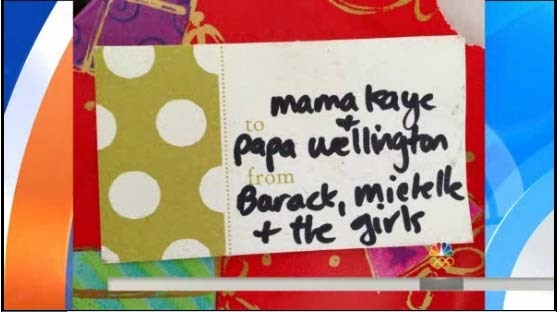 mama kaye
to +
papa wellington
from
Barack, mietelle
+ the girls